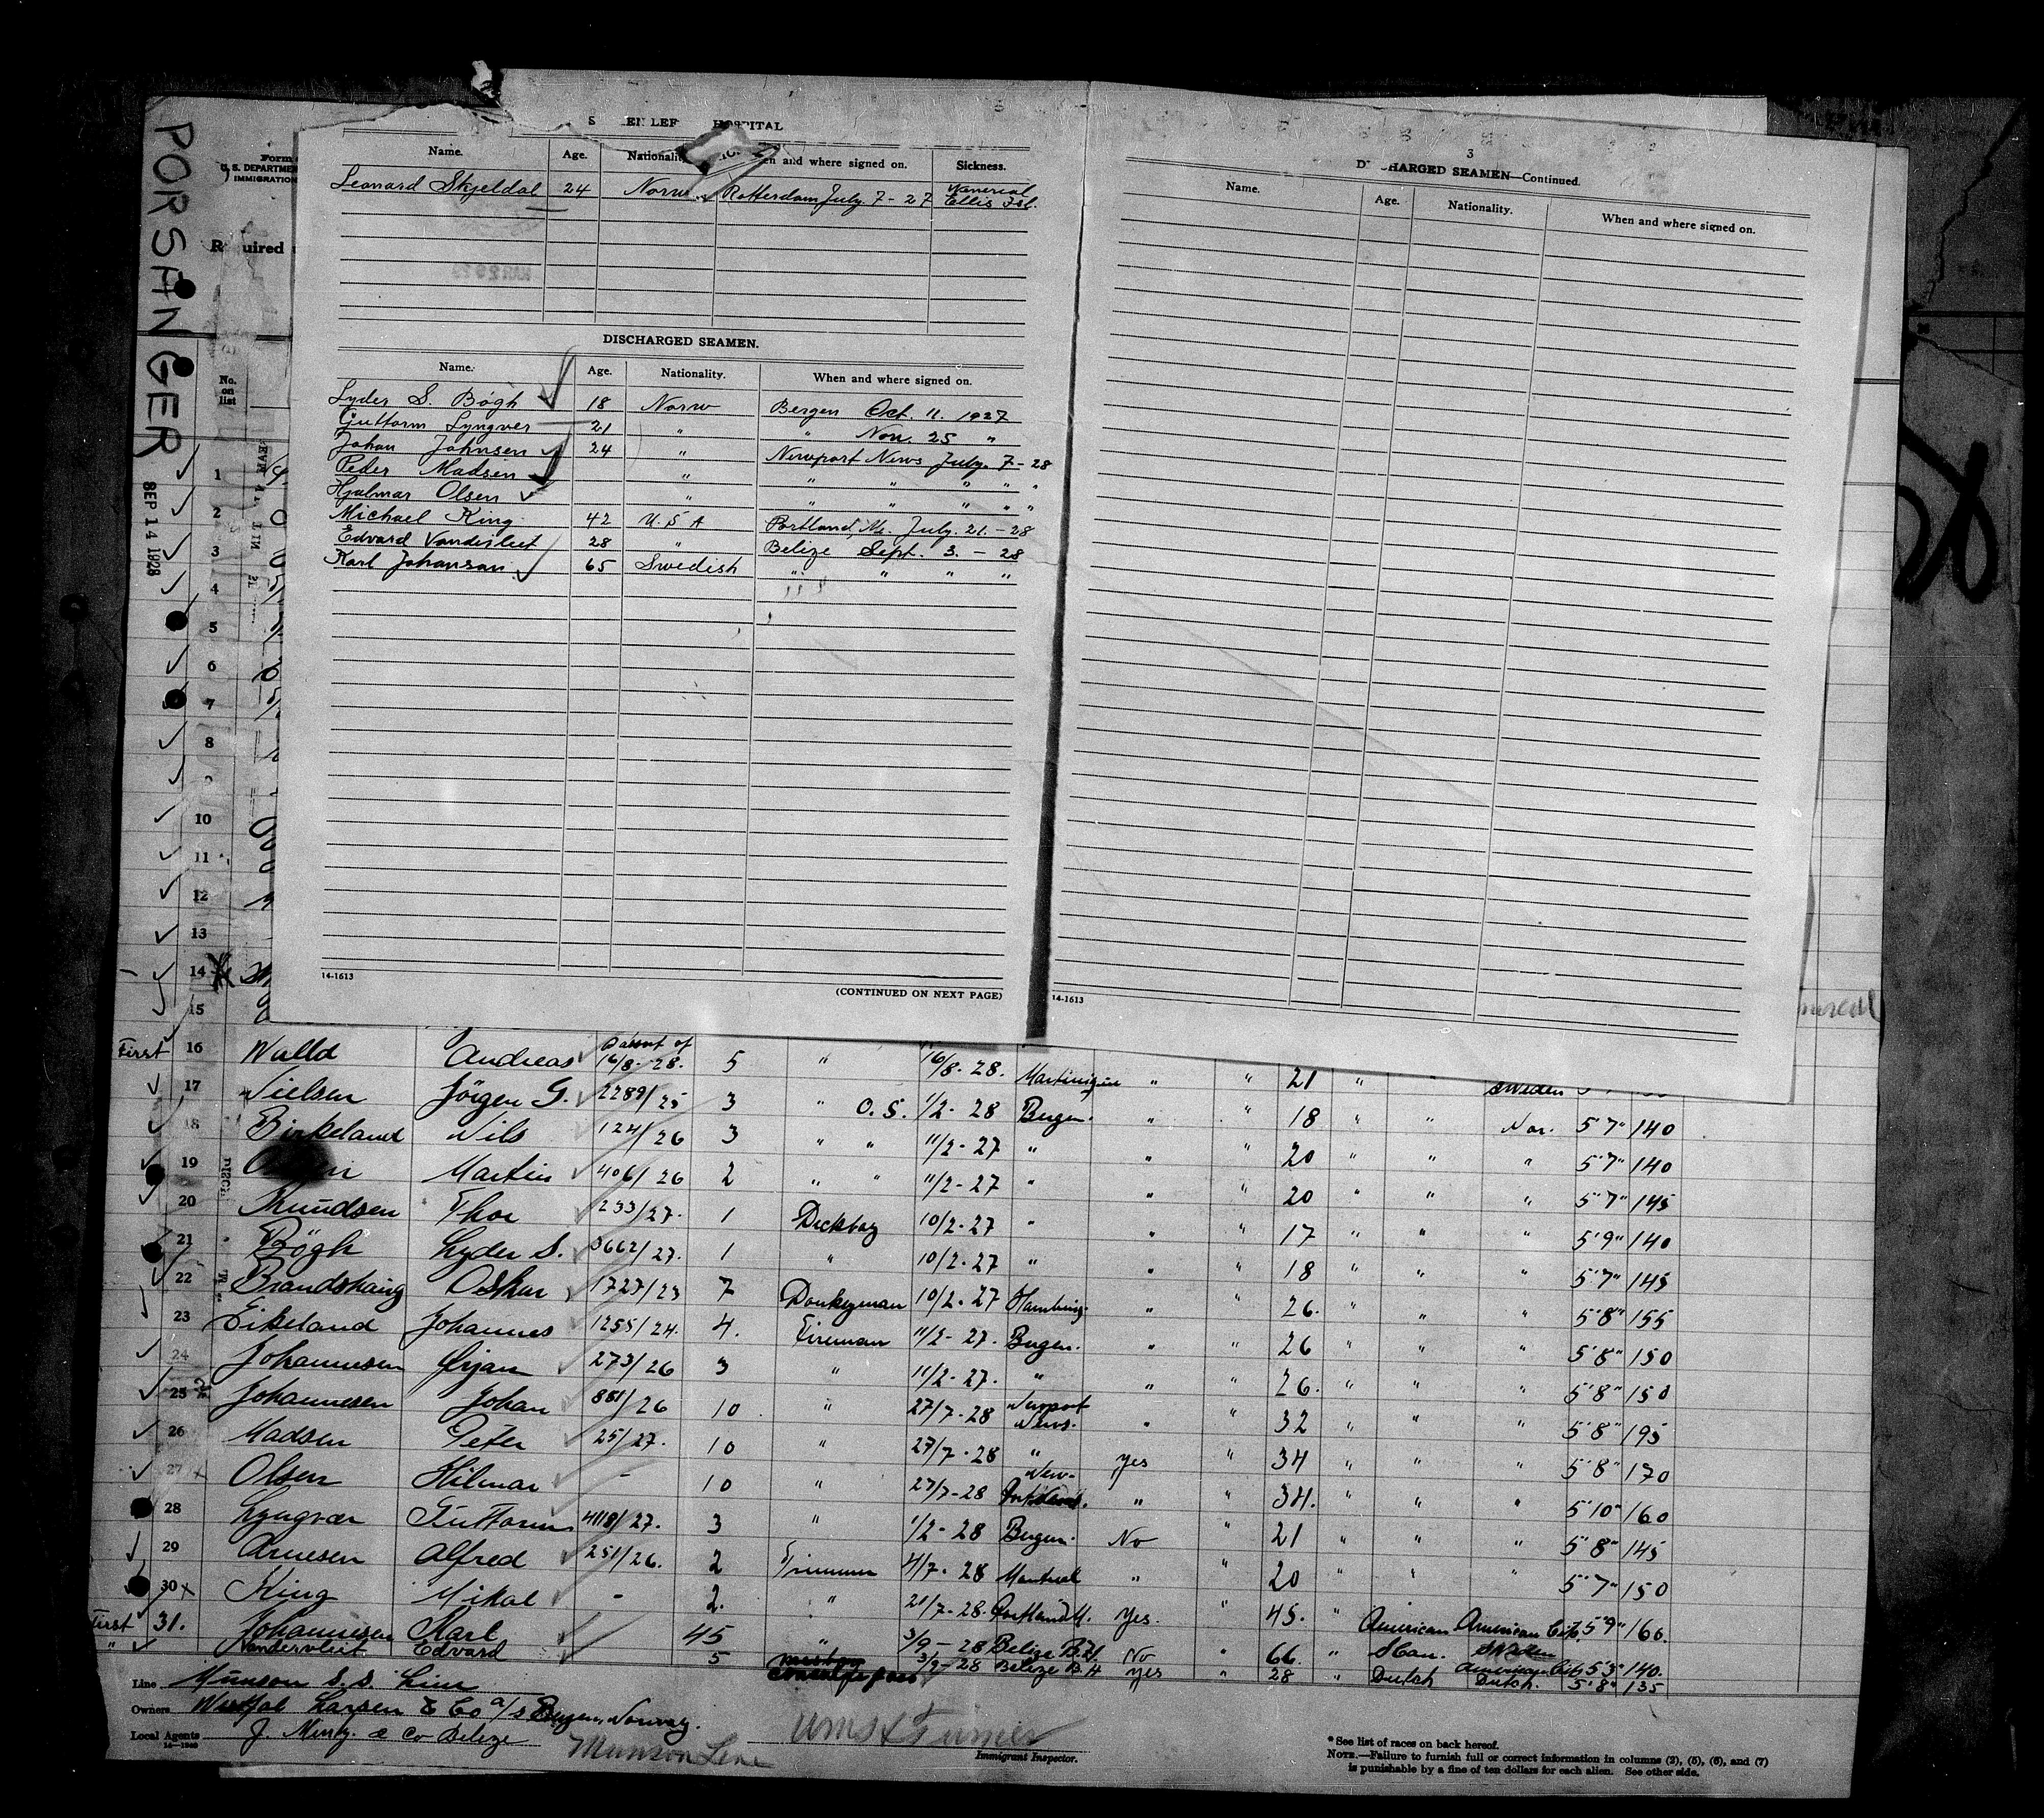 PORSANGER
SEP 14 1928
Form
U. S. DEPARTMEN
IMMIGRATION
uired
No. on list
HOSPITAL
Name. Age. Nationality When and where signed on. Sickness.
Leonard Skjeldal 24 Norw Rotterdam July 7 - 27 Venereal Ellis Isl.
DISCHARGED SEAMEN.
Name. Age. Nationality. When and where signed on.
Lyder S. Bögh 18 Norw Bergen Oct. 11. 1927
Guttorm Lyngver 21 " " Nov. 25 "
Johan Johnsen 24 " Newport News July. 7 - 28
Peder Madsen " " " " "
Hjalmar Olsen " " " " "
Michael King 42 U. S A Portland, Me. July. 21. - 28
Edvard Vandervliet 28 " Belize Sept. 3. - 28
Karl Johansan 65 Swedish " " " "
14-1613
(CONTINUED ON NEXT PAGE)
3
DISCHARGED SEAMEN—Continued.
Name. Age. Nationality. When and where signed on.
14-1613
1
2
3
4
5
6
7
8
9
10
11
12
13
14
15
First 16 Walld Andreas 16/8-28. 5 " 16/8-28. Martinique " " 21 " " Sweden
17 Nielsen Jörgen G. 2289/25 3 " O. S. 1/2-28 Bergen. " " 18 " " Nor. 5'7" 140
18 Birkeland Nils 124/26 3 " " 11/2-27 " " " 20 " " " 5'7" 140
19 Martin 406/26 2 " " 11/2-27 " " " 20 " " " 5'7" 145
20 Knudsen Thor 233/27. 1 Deckboy 10/2-27 " " " 17 " " " 5'9" 140
21 Bögh Lyder S. 3662/27. 1 " 10/2-27 " " " 18 " " " 5'7" 145
22 Brandshaug Oskar 1727/23 7 Donkeyman 10/2-27 Hamburg. " " 26. " " " 5'8" 155
23 Eikeland Johannes 1255/24. 4. Fireman 11/2-27. Bergen. " " 26 " " " 5'8" 150
24 Johannesen Örjan 273/26 3 " 11/2-27. " " " 26. " " " 5'8" 150
25 Johannesen Johan 881/26 10 " 27/7-28 Newport News. " " 32 " " " 5'8" 195
26 Madsen Peter 25/27. 10 " 27/7-28 " yes " 34 " " " 5'8" 170
27 Olsen Hilmar - 10 " 27/7-28 New- " " 34. " " " 5'10" 160
28 Lyngvær Guttorm 4119/27. 3 " 1/2-28 Bergen. No " 21 " " " 5'8" 145
29 Arnesen Alfred 251/26. 2 Trimmer 4/7-28 Montreal " " 20 " " " 5'7" 150
30 King Mikal - 2. " 21/7-28. Portland M. Yes. " 45. " American American Cit. 5'9" 160.
First 31. Johannesen Karl 45 " 3/9-28 Belize B.H. No " 66. " Scan. Sweden 5'5" 140.
" Vandervliet Edvard 5 3/9-28 Belize B.H yes " 28 " Dutch Dutch. 5'8" 135
Line Munson S.S. Line
Owners Westfal Larsen & Co a/s Bergen, Norway.
Local Agents J. & Co Belize
Munson Line
Immigrant Inspector.
* See list of races on back hereof.
NOTE.—Failure to furnish full or correct information in columns (2), (5), (6), and (7)
is punishable by a fine of ten dollars for each alien. See other side.